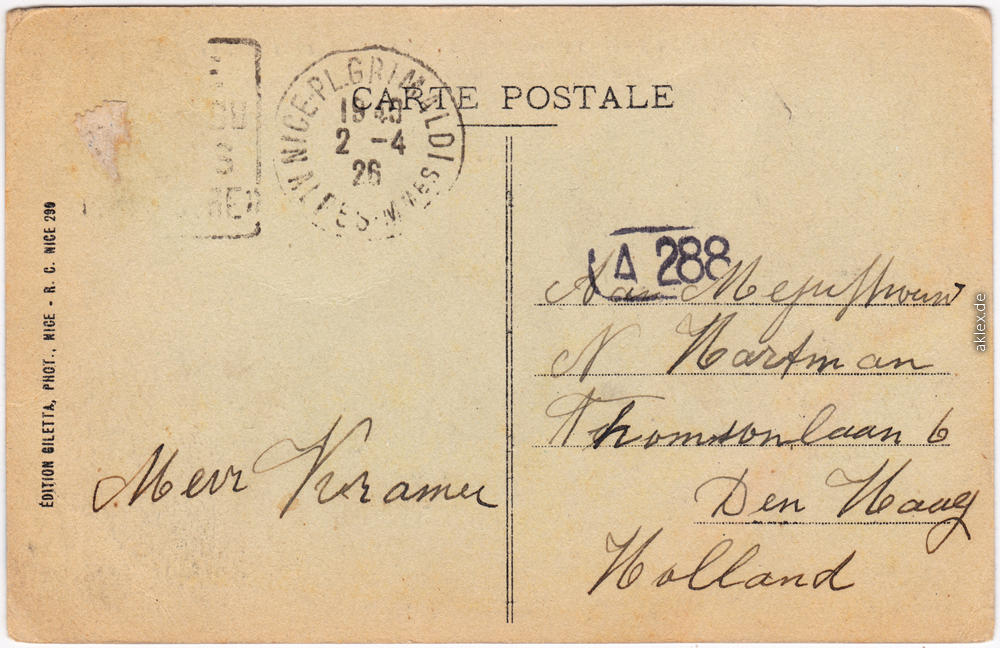 CARTE POSTALE
NICE-PL.GRIMALDI
19 40
2 - 4
26
ALPES-MMES
A 288
Aan Mejuffrouw
N Hartman
Thomsonlaan 6
Den Haag
Holland
Mevr Kramer
ÉDITION GILETTA, PHOT., NICE - R. C. NICE 290
aklex.de